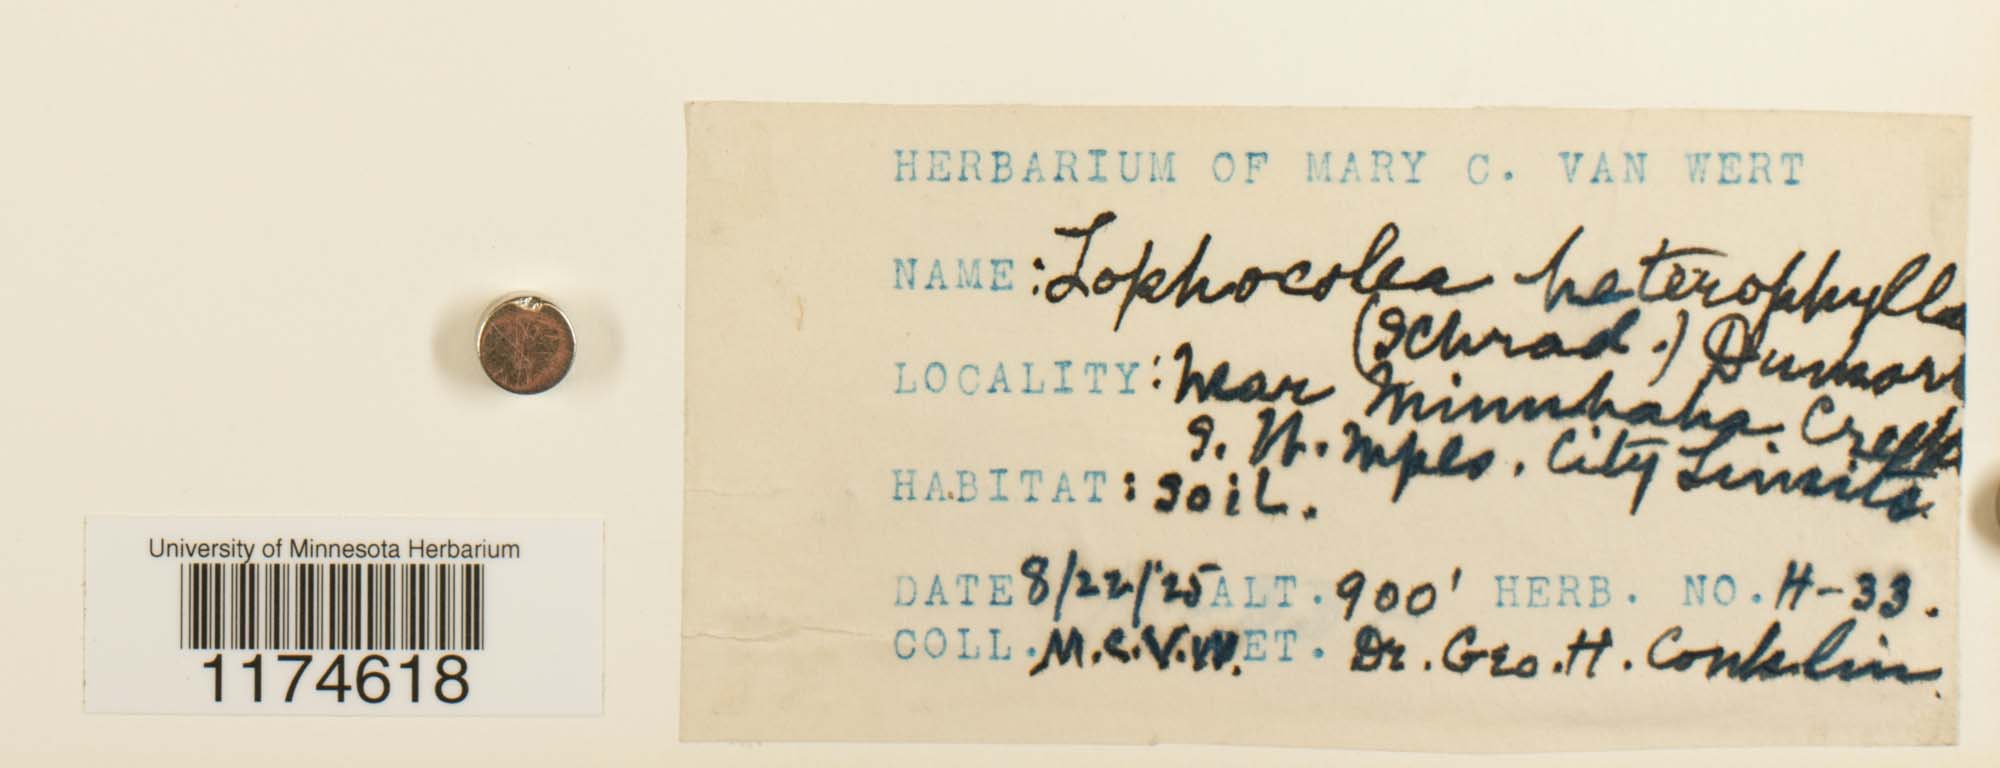 HERBARIUM OF MARY C. VAN WERT
NAME: Lophocolea heterophylla
(Schrad.) Dumort
LOCALITY: Near Minnehaha Creek
S. W. Mpls. City Limits.
HABITAT: Soil.
DATE 8/22/'25 ALT. 900' HERB. NO. H-33.
COLL. M.C.V.W. ET. Dr. Geo. H. Conklin.
University of Minnesota Herbarium
1174618